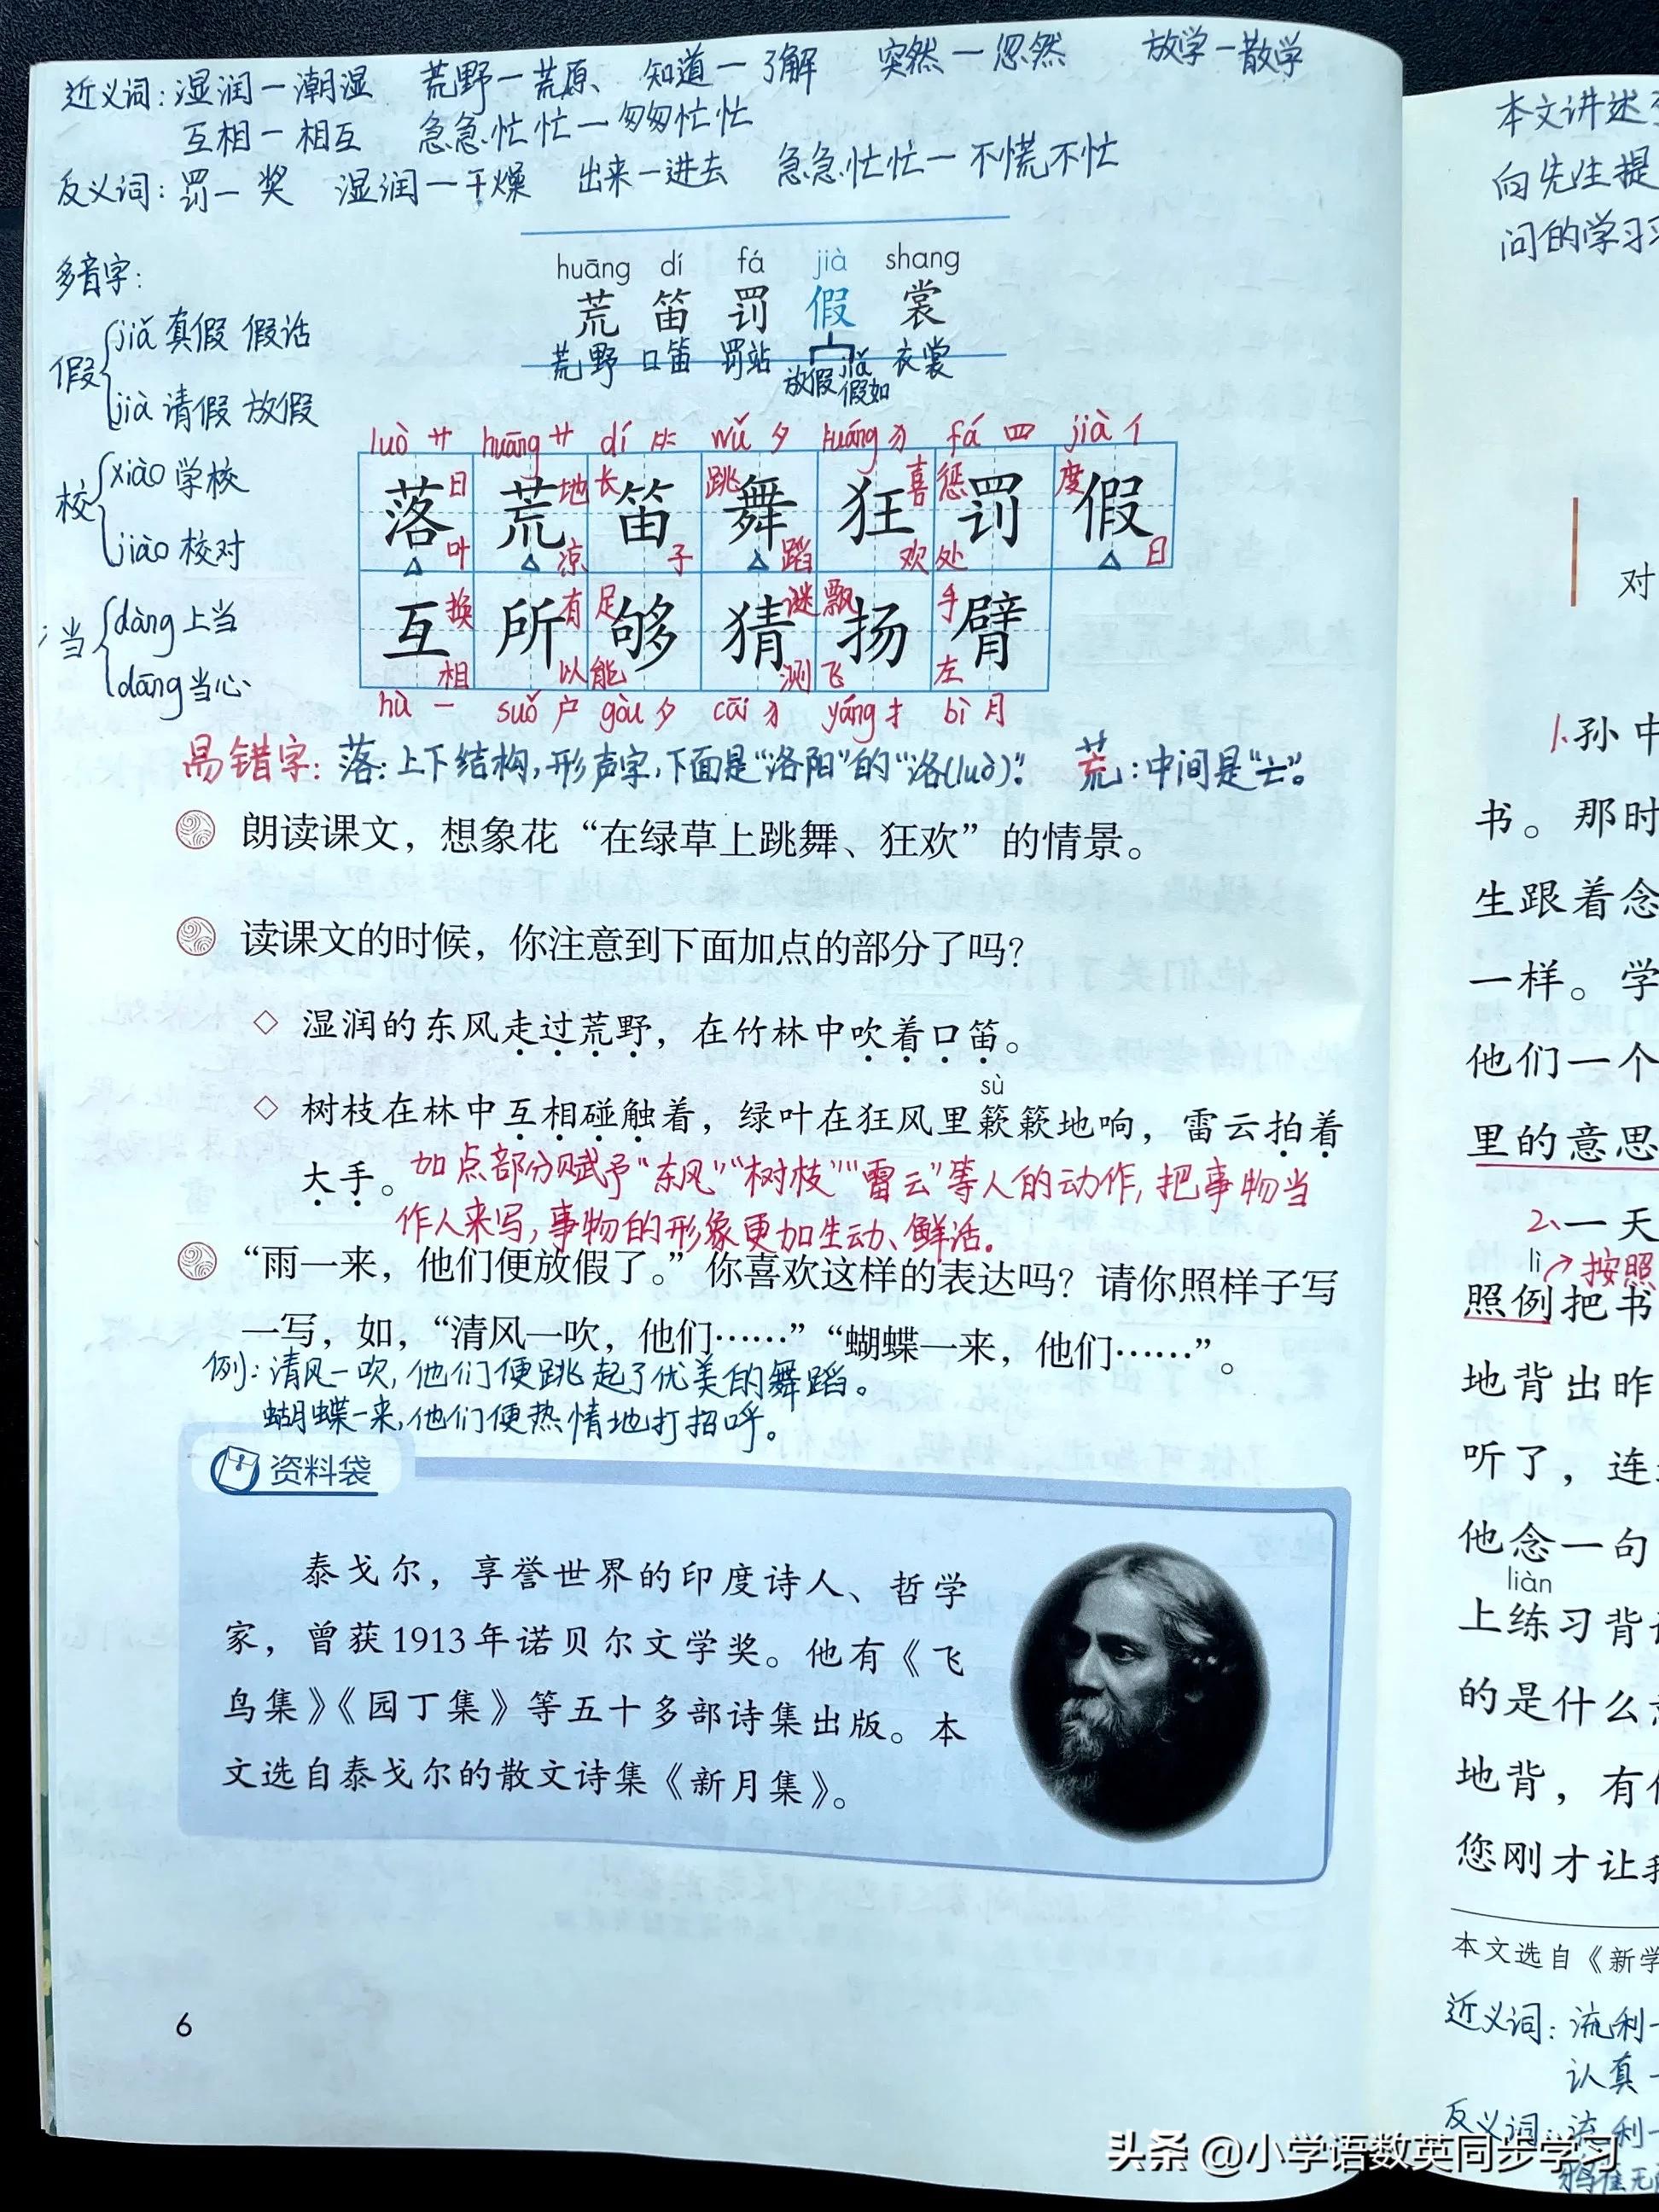 近义词：湿润一潮湿 荒野一荒原 知道一了解 突然一忽然 放学一散学
互相一相互 急急忙忙一匆匆忙忙
反义词：罚一奖 湿润一干燥 出来一进去 急急忙忙一不慌不忙
huāng dí fá jià shang
荒 笛 罚 假 裳
荒野 口笛 罚站 放假 jiǎ 假如 衣裳
多音字：
假 jiǎ 真假 假话
jià 请假 放假
校 xiào 学校
jiào 校对
当 dàng 上当
dāng 当心
luò 艹 huāng 艹 dí ⺮ wǔ 夕 kuáng 犭 fá 罒 jià 亻
落 日 叶 荒 地 凉 笛 长 子 舞 跳 蹈 狂 喜 欢 罚 惩 处 假 度 日
互 换 相 所 有 以 够 足 能 猜 谜 测 扬 飘 飞 臂 手 左
hù 一 suǒ 户 gòu 夕 cāi 犭 yáng 扌 bì 月
易错字：落：上下结构，形声字，下面是“洛阳”的“洛(luò)”。 荒：中间是“亡”。
朗读课文，想象花“在绿草上跳舞、狂欢”的情景。
读课文的时候，你注意到下面加点的部分了吗？
◇ 湿润的东风走过荒野，在竹林中吹着口笛。
sù
◇ 树枝在林中互相碰触着，绿叶在狂风里簌簌地响，雷云拍着
大手。加点部分赋予“东风”“树枝”“雷云”等人的动作，把事物当
作人来写，事物的形象更加生动、鲜活。
“雨一来，他们便放假了。”你喜欢这样的表达吗？请你照样子写
一写，如，“清风一吹，他们……”“蝴蝶一来，他们……”。
例：清风一吹，他们便跳起了优美的舞蹈。
蝴蝶一来，他们便热情地打招呼。
资料袋
泰戈尔，享誉世界的印度诗人、哲学
家，曾获1913年诺贝尔文学奖。他有《飞
鸟集》《园丁集》等五十多部诗集出版。本
文选自泰戈尔的散文诗集《新月集》。
6
本文讲述
向先生提
问的学习
对
1、孙中
书。那时
生跟着念
一样。学
他们一个
里的意思
2、一天
lì 按照
照例把书
地背出昨
听了，连
他念一句
liàn
上练习背
的是什么
地背，有
您刚才让
本文选自《新学
近义词：流利一
认真一
反义词：流利一
头条 @小学语数英同步学习